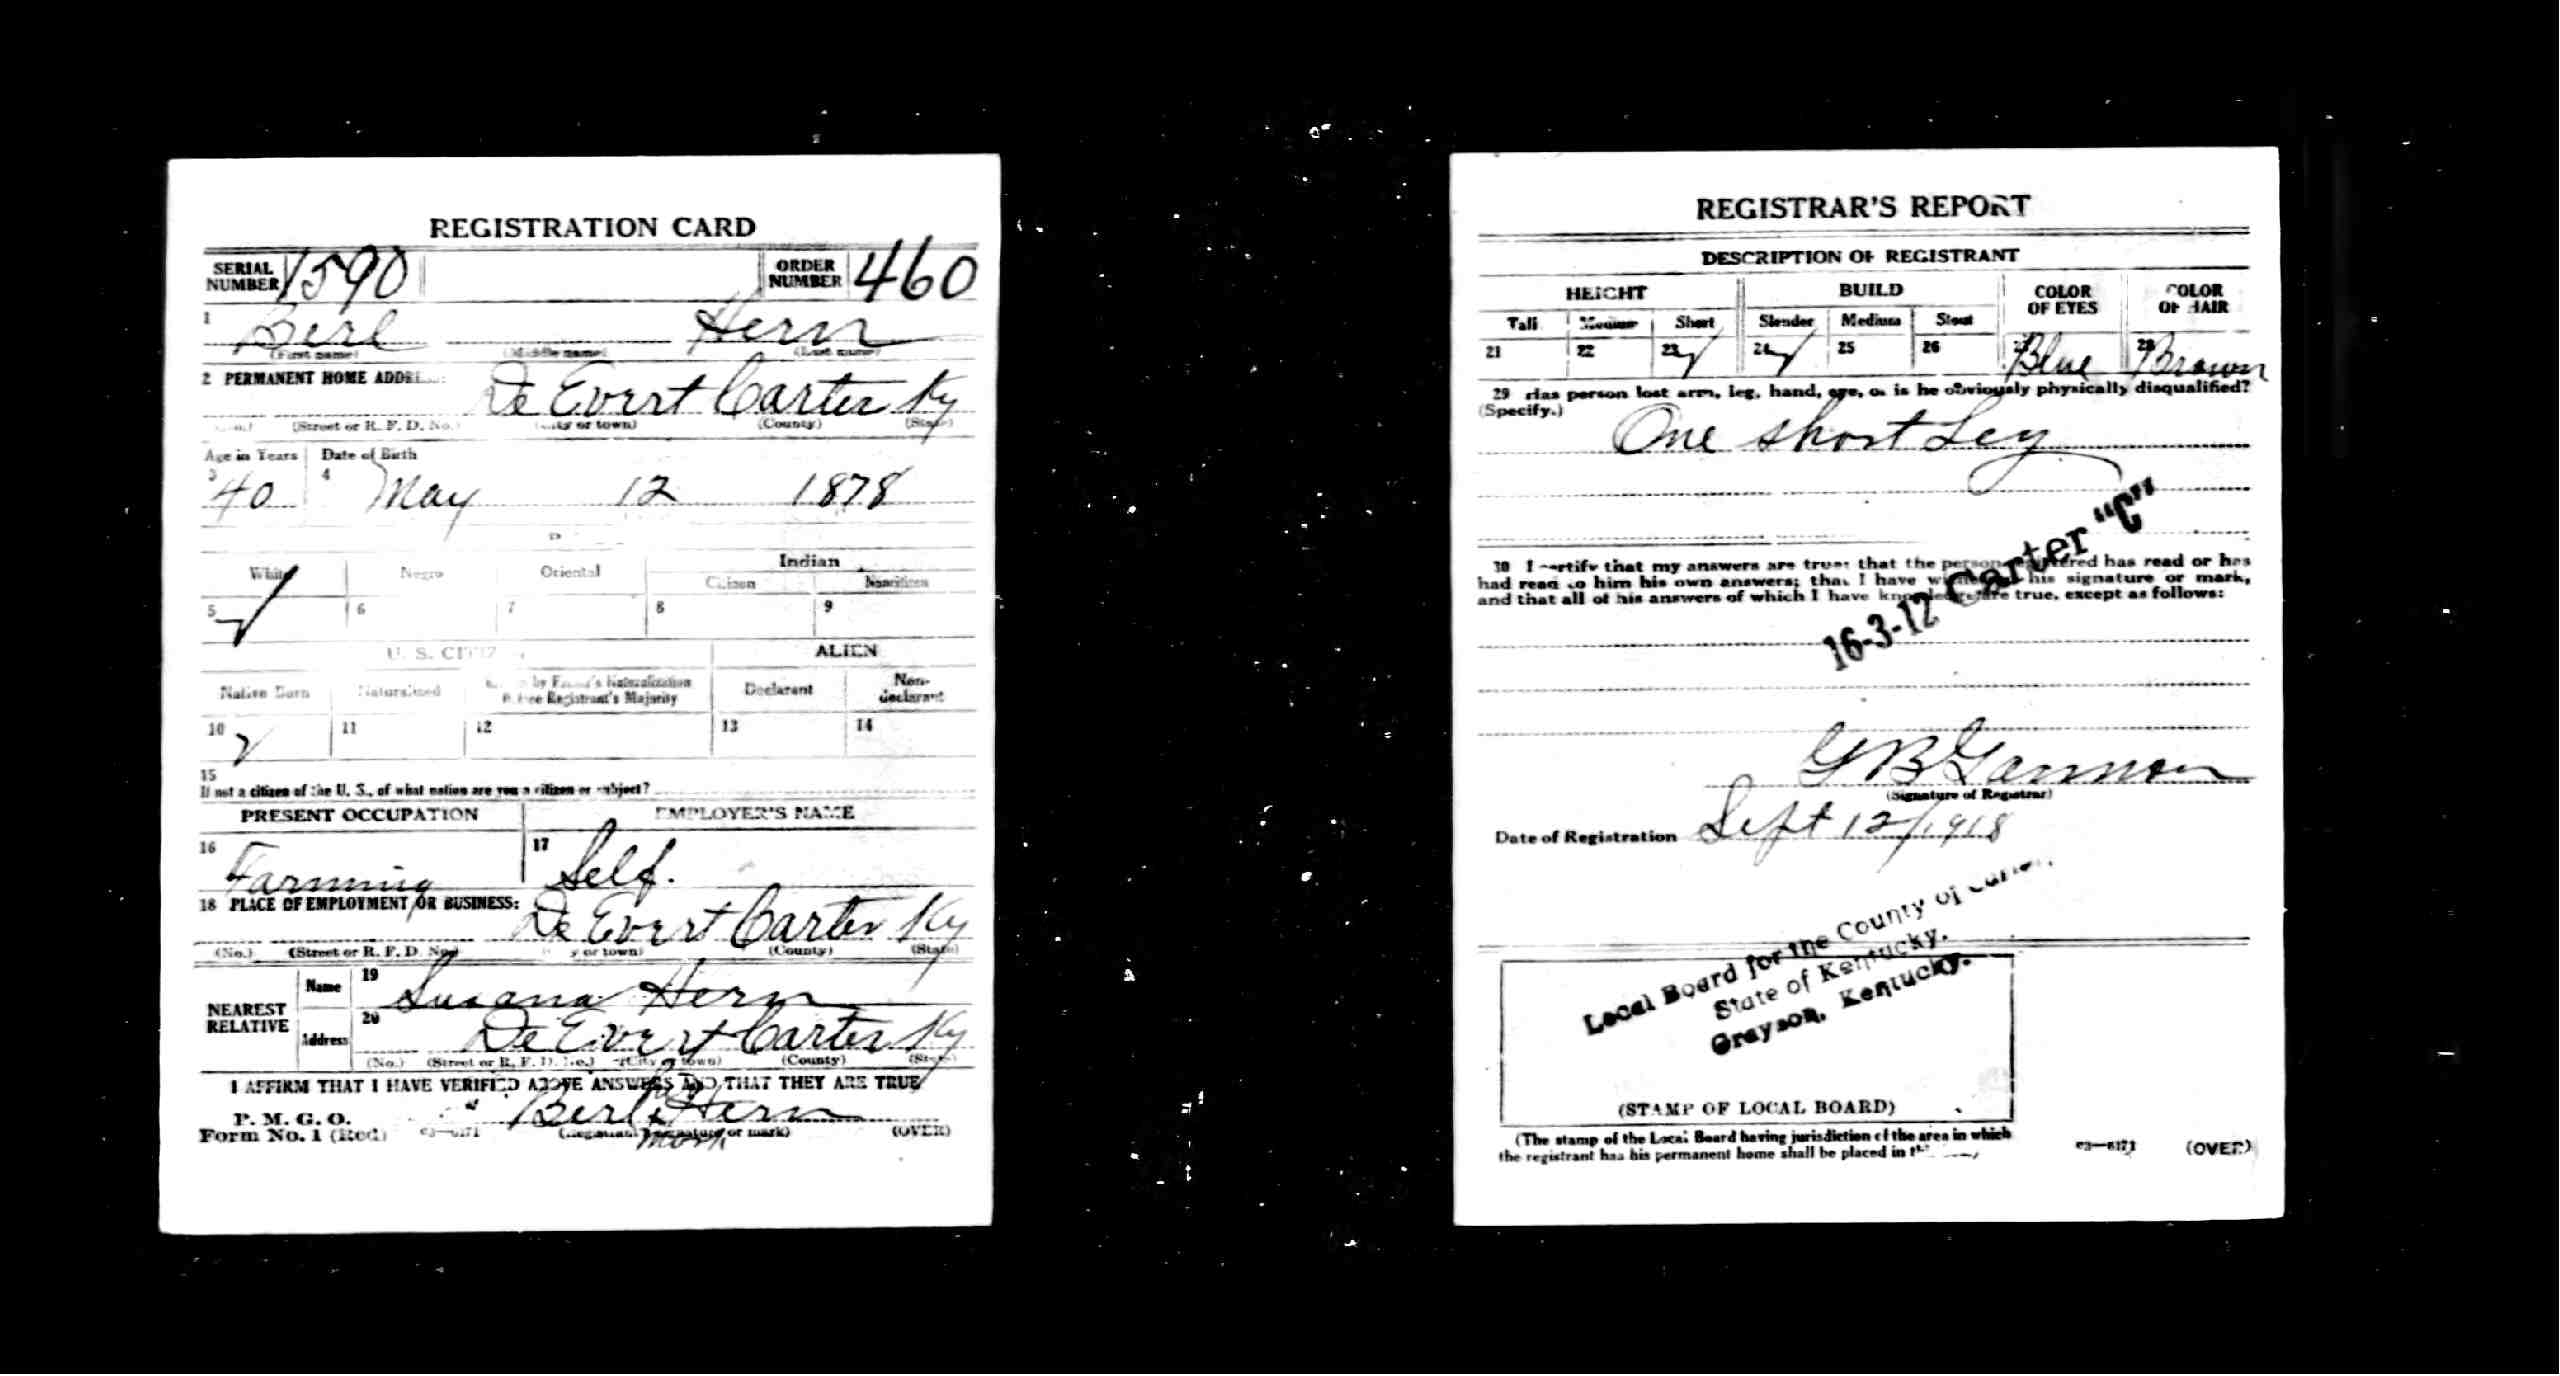 REGISTRATION CARD
SERIAL NUMBER 1590 ORDER NUMBER 460
1 Berl Hern
(First name) (Middle name) (Last name)
2 PERMANENT HOME ADDRE
De Evert Carter Ky
(Street or R. F. D. No.) or town) (County) (State)
Age in Years Date of Birth
3 40 4 May 12 1878
Indian
White Negro Oriental Citizen Noncitizen
5 6 7 8 9
U. S. CITIZ ALIEN
Native Born Naturalized by Father's Naturalization Before Registrant's Majority Declarant Non-declarant
10 11 12 13 14
15
If not a citizen of the U. S., of what nation are you a citizen or subject?
PRESENT OCCUPATION EMPLOYER'S NAME
16 Farming 17 Self.
18 PLACE OF EMPLOYMENT OR BUSINESS:
De Evert Carter Ky
(No.) (Street or R. F. D. No.) or town) (County) (State)
NEAREST RELATIVE
Name 19 Susana Hern
Address 20 De Evert Carter Ky
(No.) (Street or R. F. D. No.) (City or town) (County) (State)
I AFFIRM THAT I HAVE VERIFIED ABOVE ANSWERS AND THAT THEY ARE TRUE
P. M. G. O.
Form No. 1 (Red)
Berl Hern
(Registrant's signature or mark) (OVER)
mark
REGISTRAR'S REPORT
DESCRIPTION OF REGISTRANT
HEIGHT BUILD COLOR OF EYES COLOR OF HAIR
Tall Medium Short Slender Medium Stout
21 22 23 24 25 26 Blue 28 Brown
29 Has person lost arm, leg, hand, eye, or is he obviously physically disqualified?
(Specify.)
One short Leg
30 I certify that my answers are true; that the person registered has read or has
had read to him his own answers; that I have witnessed his signature or mark,
and that all of his answers of which I have knowledge are true, except as follows:
16-3-12 Carter "C"
G B Gannon
(Signature of Registrar)
Date of Registration Sept 12/1918
Local Board for the County of Carter,
State of Kentucky.
Grayson, Kentucky.
(STAMP OF LOCAL BOARD)
(The stamp of the Local Board having jurisdiction of the area in which
the registrant has his permanent home shall be placed in
03—6171 (OVER)